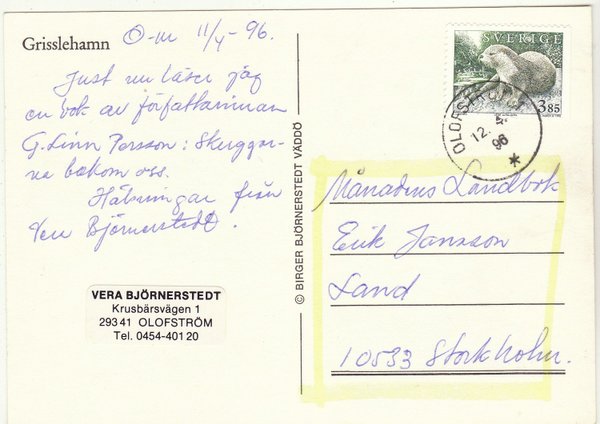 Grisslehamn
Ö-m 11/4-96.
Just nu läser jag
en bok av författarinnan
G. Linn Persson: Skuggor-
na bakom oss.
Hälsningar från
Vera Björnerstedt.
VERA BJÖRNERSTEDT
Krusbärsvägen 1
293 41 OLOFSTRÖM
Tel. 0454-401 20
© BIRGER BJÖRNERSTEDT VÄDDÖ
SVERIGE
3.85
OLOFSTRÖM
12.4.
96
Månadens Landbok
Erik Jansson
Land
10533 Stockholm.